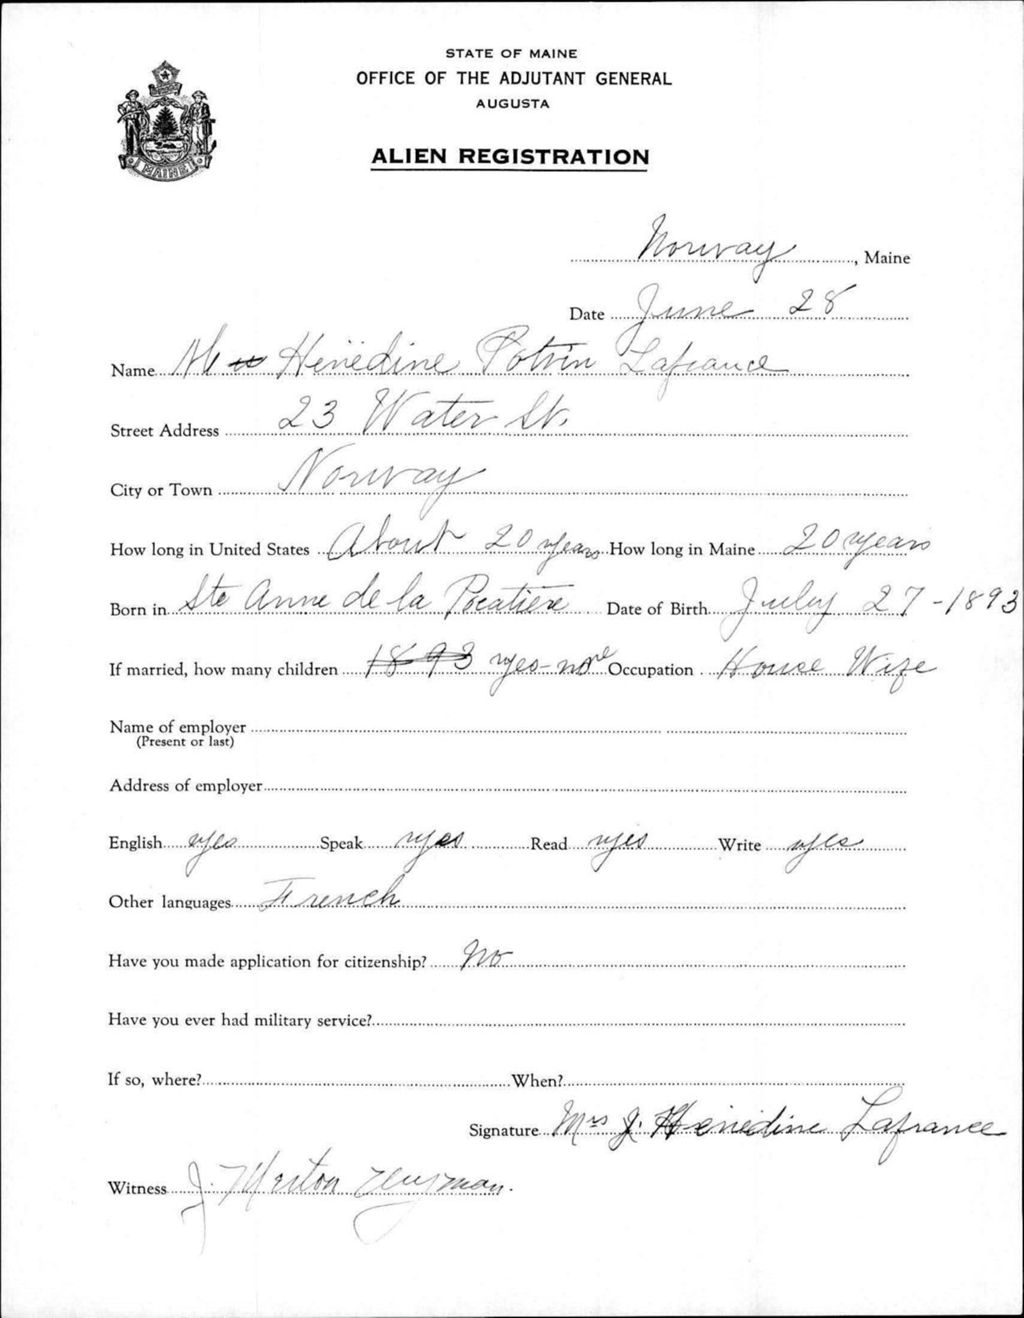 STATE OF MAINE
OFFICE OF THE ADJUTANT GENERAL
AUGUSTA
ALIEN REGISTRATION
MAINE
Norway, Maine
Date June 28
Name Henedine Potvin Lafrance
Street Address 23 Water St.
City or Town Norway
How long in United States About 20 years How long in Maine 20 years
Born in Ste Anne de la Pocatiere Date of Birth July 27-1893
If married, how many children 1893 yes-none Occupation House Wife
Name of employer
(Present or last)
Address of employer
English yes Speak yes Read yes Write yes
Other languages French
Have you made application for citizenship? No
Have you ever had military service?
If so, where? When?
Signature Mrs J. Henedine Lafrance
Witness J. Merton